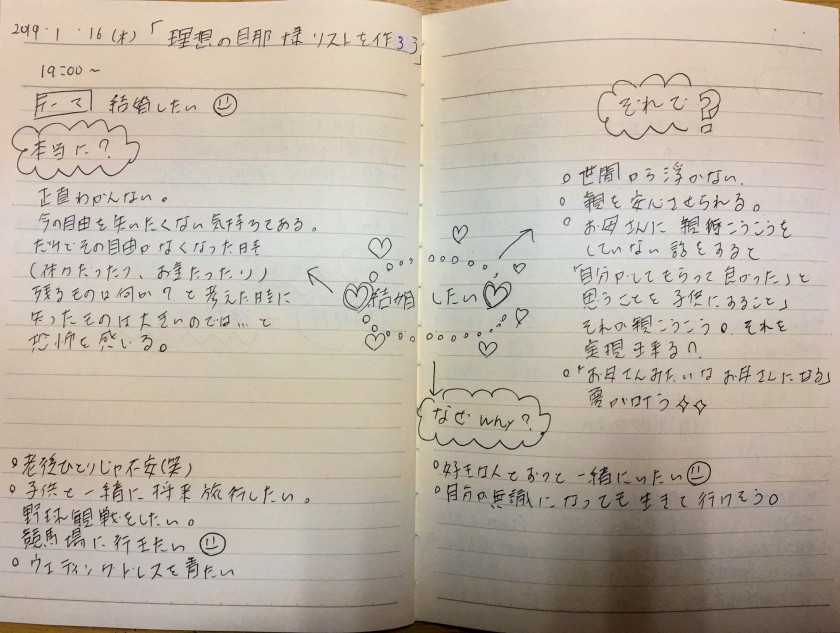 2019.1.16(水)「理想の旦那様リストを作ろう」
19:00〜
テーマ 結婚したい
本当に?
正直わかんない。
今の自由を失いたくない気持ちである。
だけどその自由がなくなった時
(体力だったり、お金だったり)
残るものは何か?と考えた時に
失ったものは大きいのでは…と
恐怖を感じる。
結婚したい
なぜ why?
老後ひとりじゃ不安(笑)
子供と一緒に将来旅行したい。
野球観戦をしたい。
競馬場に行きたい
ウエディングドレスを着たい
好きな人とずっと一緒にいたい
自分が無識になっても生きて行けそう。
それで?
世間から浮かない。
親を安心させられる。
お母さんに親孝こうこうを
していない話をすると
「自分がしてもらって良かった」と
思うことを子供にすること」
それが親こうこう。それを
実現出来る?
「お母さんみたいなお母さんになる」
夢が叶う